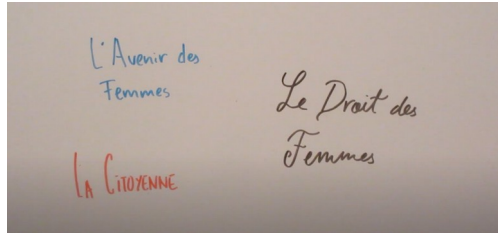 L'Avenir des
Femmes
Le Droit des
Femmes
LA CITOYENNE